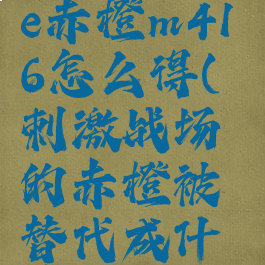 e赤橙m41
6怎么得(
刺激战场
的赤橙被
替代成什